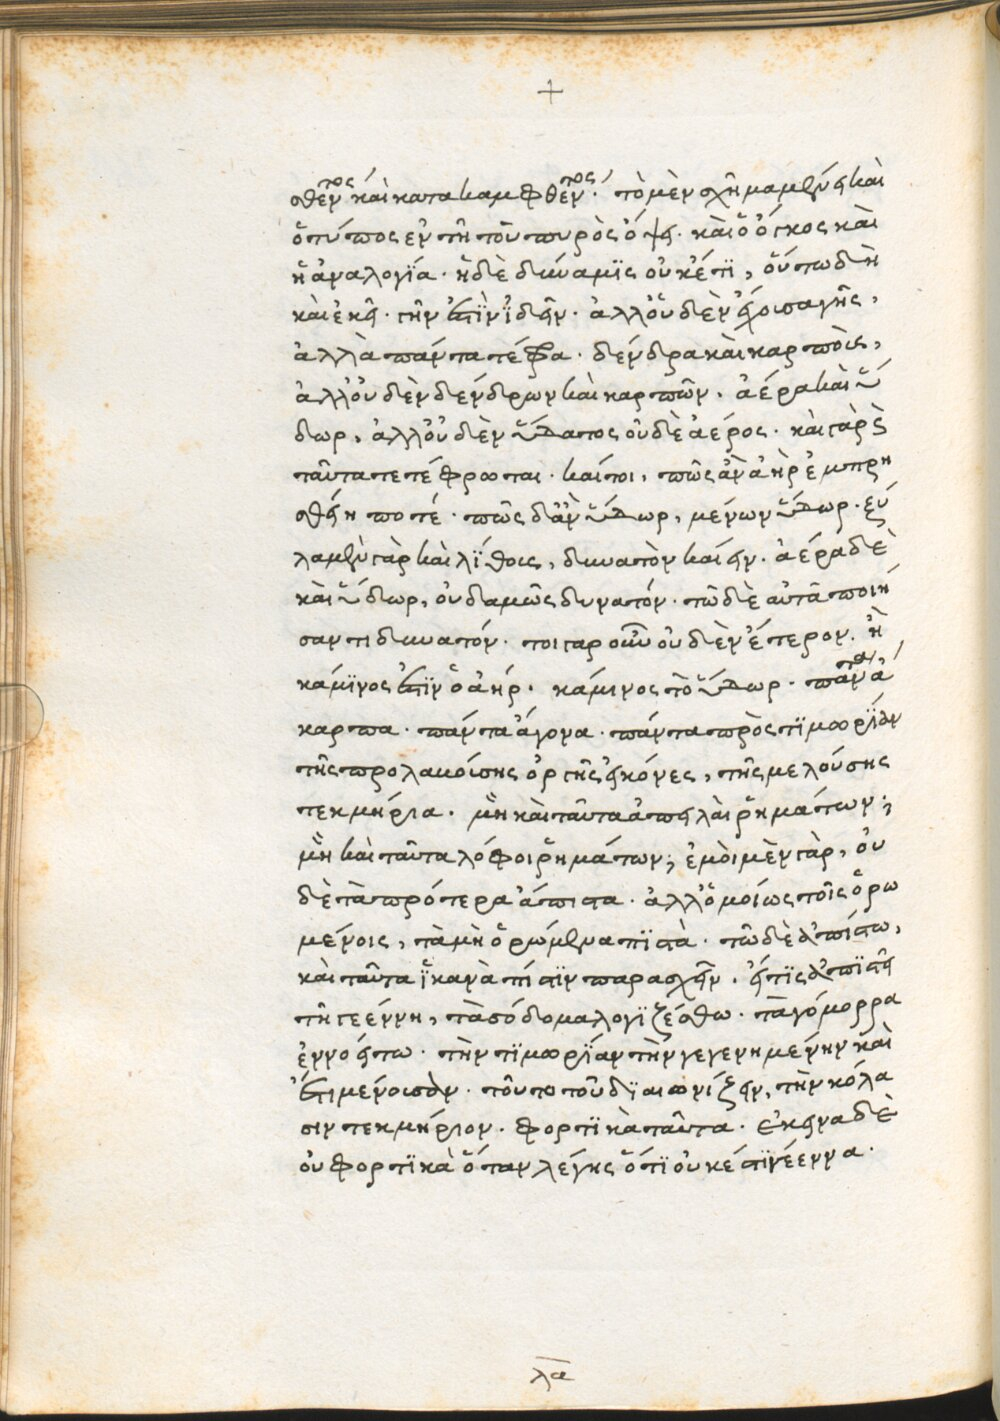 +
σθέντος καὶ κατακαμφθέντος· τὸ μὲν σχῆμα μένει καὶ
ὁ τύπος ἐν τῇ τοῦ πυρὸς ὄψει· καὶ ὁ ὄγκος καὶ
ἡ ἀναλογία· ἡ δὲ δύναμις οὐκέτι, οὕτω δὴ
καὶ ἐκεῖ· γῆν ἐστὶν ἰδεῖν· ἀλλ' οὐδὲν
ἀλλὰ πάντα τέφρα· δένδρα καὶ καρποὺς,
ἀλλ' οὐδὲν δένδρων καὶ καρπῶν· ἀέρα καὶ ὕ
δωρ, ἀλλ' οὐδὲν ὕδατος οὐδὲ ἀέρος· καὶ γὰρ
ταῦτα τετέφρωται· καίτοι, πῶς ἂν ἀὴρ ἐμπρη
σθείη ποτέ· πῶς δ' ἂν ὕδωρ, μένων ὕδωρ· ξύ
λα μὲν γὰρ καὶ λίθους, δυνατὸν καίειν· ἀέρα δὲ
καὶ ὕδωρ, οὐδαμῶς δυνατόν· τῷ δὲ αὐτὰ ποιή
σαντι δυνατόν· τοιγαροῦν οὐδὲν ἕτερον· ἢ
κάμινός ἐστιν ὁ ἀήρ· κάμινος τὸ ὕδωρ· πάντα ἄ
καρπα· πάντα ἄγονα· πάντα πρὸς τιμωρίαν
τῆς προλαβούσης ὀργῆς εἰκόνες, τῆς μελούσης
τεκμήρια· μὴ καὶ ταῦτα ἀπειλαὶ ῥημάτων;
μὴ καὶ ταῦτα λόφοι ῥημάτων; ἐμοὶ μὲν γὰρ, οὐ
δὲ τὰ πρότερα ἄπιστα· ἀλλ' ὁμοίως τοῖς ὁρω
μένοις, τὰ μὴ ὁρώμενα πιστὰ· τῷ δὲ ἀπίστῳ,
καὶ ταῦτα ἱκανὰ πίστιν παρασχεῖν· εἴ τις ἀπιστεῖ
τῇ γεέννῃ, τὰ σόδομα λογιζέσθω· τὰ γόμορρα
ἐννοείτω· τὴν τιμωρίαν τὴν γεγενημένην καὶ
ἔτι μένουσαν· τοῦτο τοῦ διαιωνίζειν, τὴν κόλα
σιν τεκμήριον· φορτικὰ ταῦτα· ἐκεῖνα δὲ
οὐ φορτικὰ ὅταν λέγῃς ὅτι οὐκ ἔστι γέεννα·
λα